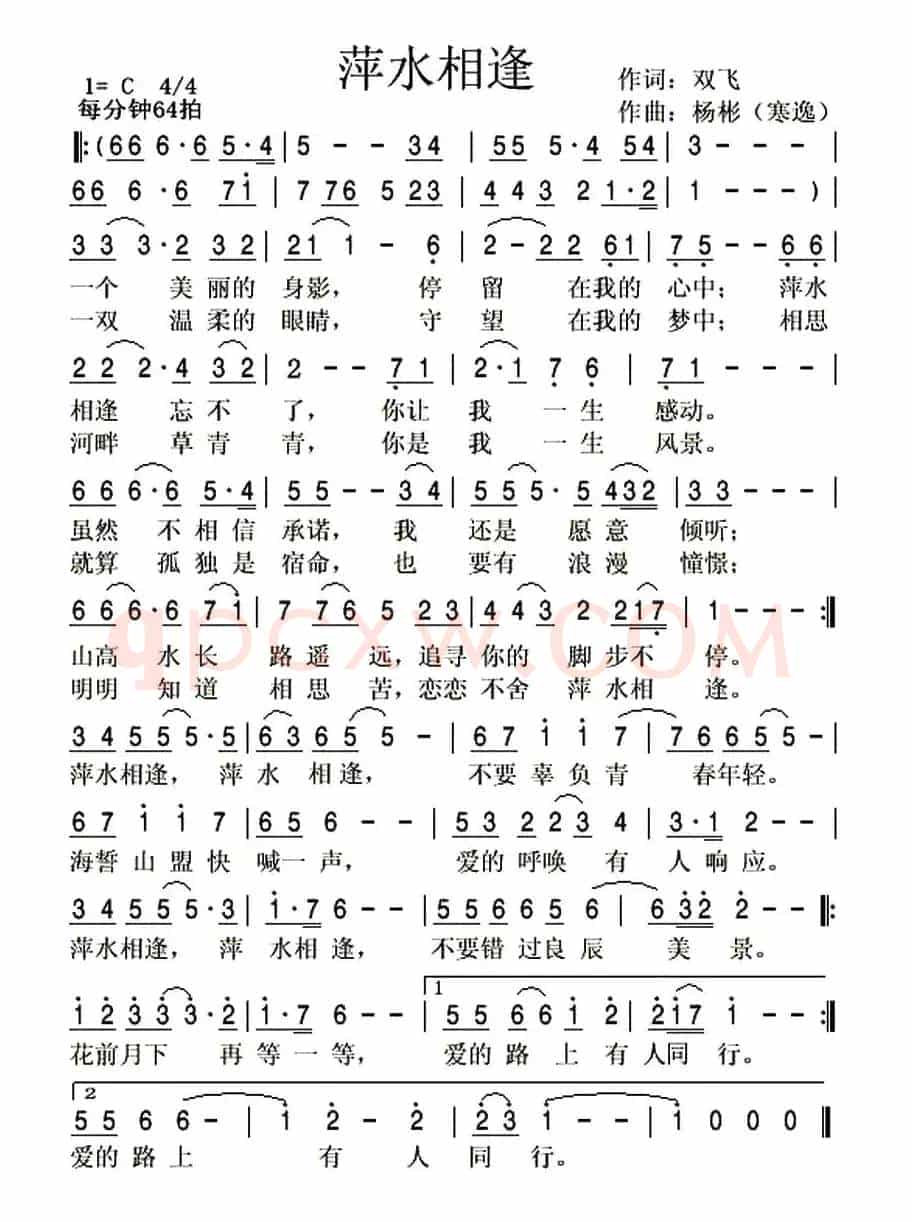 萍水相逢
1= C 4/4
每分钟64拍
作词：双飞
作曲：杨彬（寒逸）
‖:(66 6·6 5·4 | 5 - - 34 | 55 5·4 54 | 3 - - - |
66 6·6 71 | 7 76 5 23 | 443 2 1·2 | 1 - - - ) |
33 3·2 32 | 21 1 - 6 | 2 - 22 61 | 75 - - 66 |
一个 美 丽的 身影， 停 留 在我的 心中； 萍水
一双 温 柔的 眼睛， 守 望 在我的 梦中； 相思
22 2·4 32 | 2 - - 71 | 2·1 7 6 | 71 - - |
相逢 忘 不 了， 你让 我 一 生 感动。
河畔 草 青 青， 你是 我 一 生 风景。
66 6·6 5·4 | 55 - - 34 | 55 5·5 432 | 33 - - |
虽然 不 相 信 承诺， 我 还是 愿 意 倾听；
就算 孤 独 是 宿命， 也 要有 浪 漫 憧憬；
66 6·6 71 | 7 76 5 23 | 443 2 217 | 1 - - :‖
山高 水 长 路 遥 远，追寻 你的 脚 步不 停。
明明 知 道 相 思 苦，恋恋 不舍 萍 水相 逢。
34 555·5 | 63655 - | 67 1 1 7 | 76655 - |
萍水相逢， 萍 水 相 逢， 不要 辜 负 青 春年轻。
67 1 1 7 | 665 6 - - | 53 223 4 | 3·1 2 - - |
海誓 山 盟 快 喊一 声， 爱的 呼唤 有 人 响应。
34 555·3 | 1·7 6 - - | 55665 6 | 632 2 - ‖:
萍水相逢， 萍 水相 逢， 不要错 过良 辰 美 景。
1
12 333·2 | 1·7 6 - - | 55 661 2 | 217 1 - - :‖
花前月下 再 等 一 等， 爱的 路 上 有 人同 行。
2
55 66 6 - | 1 2 - 2 | 23 1 - | 1 0 0 0 ‖
爱的 路 上 有 人 同 行。
qpcxw.COM